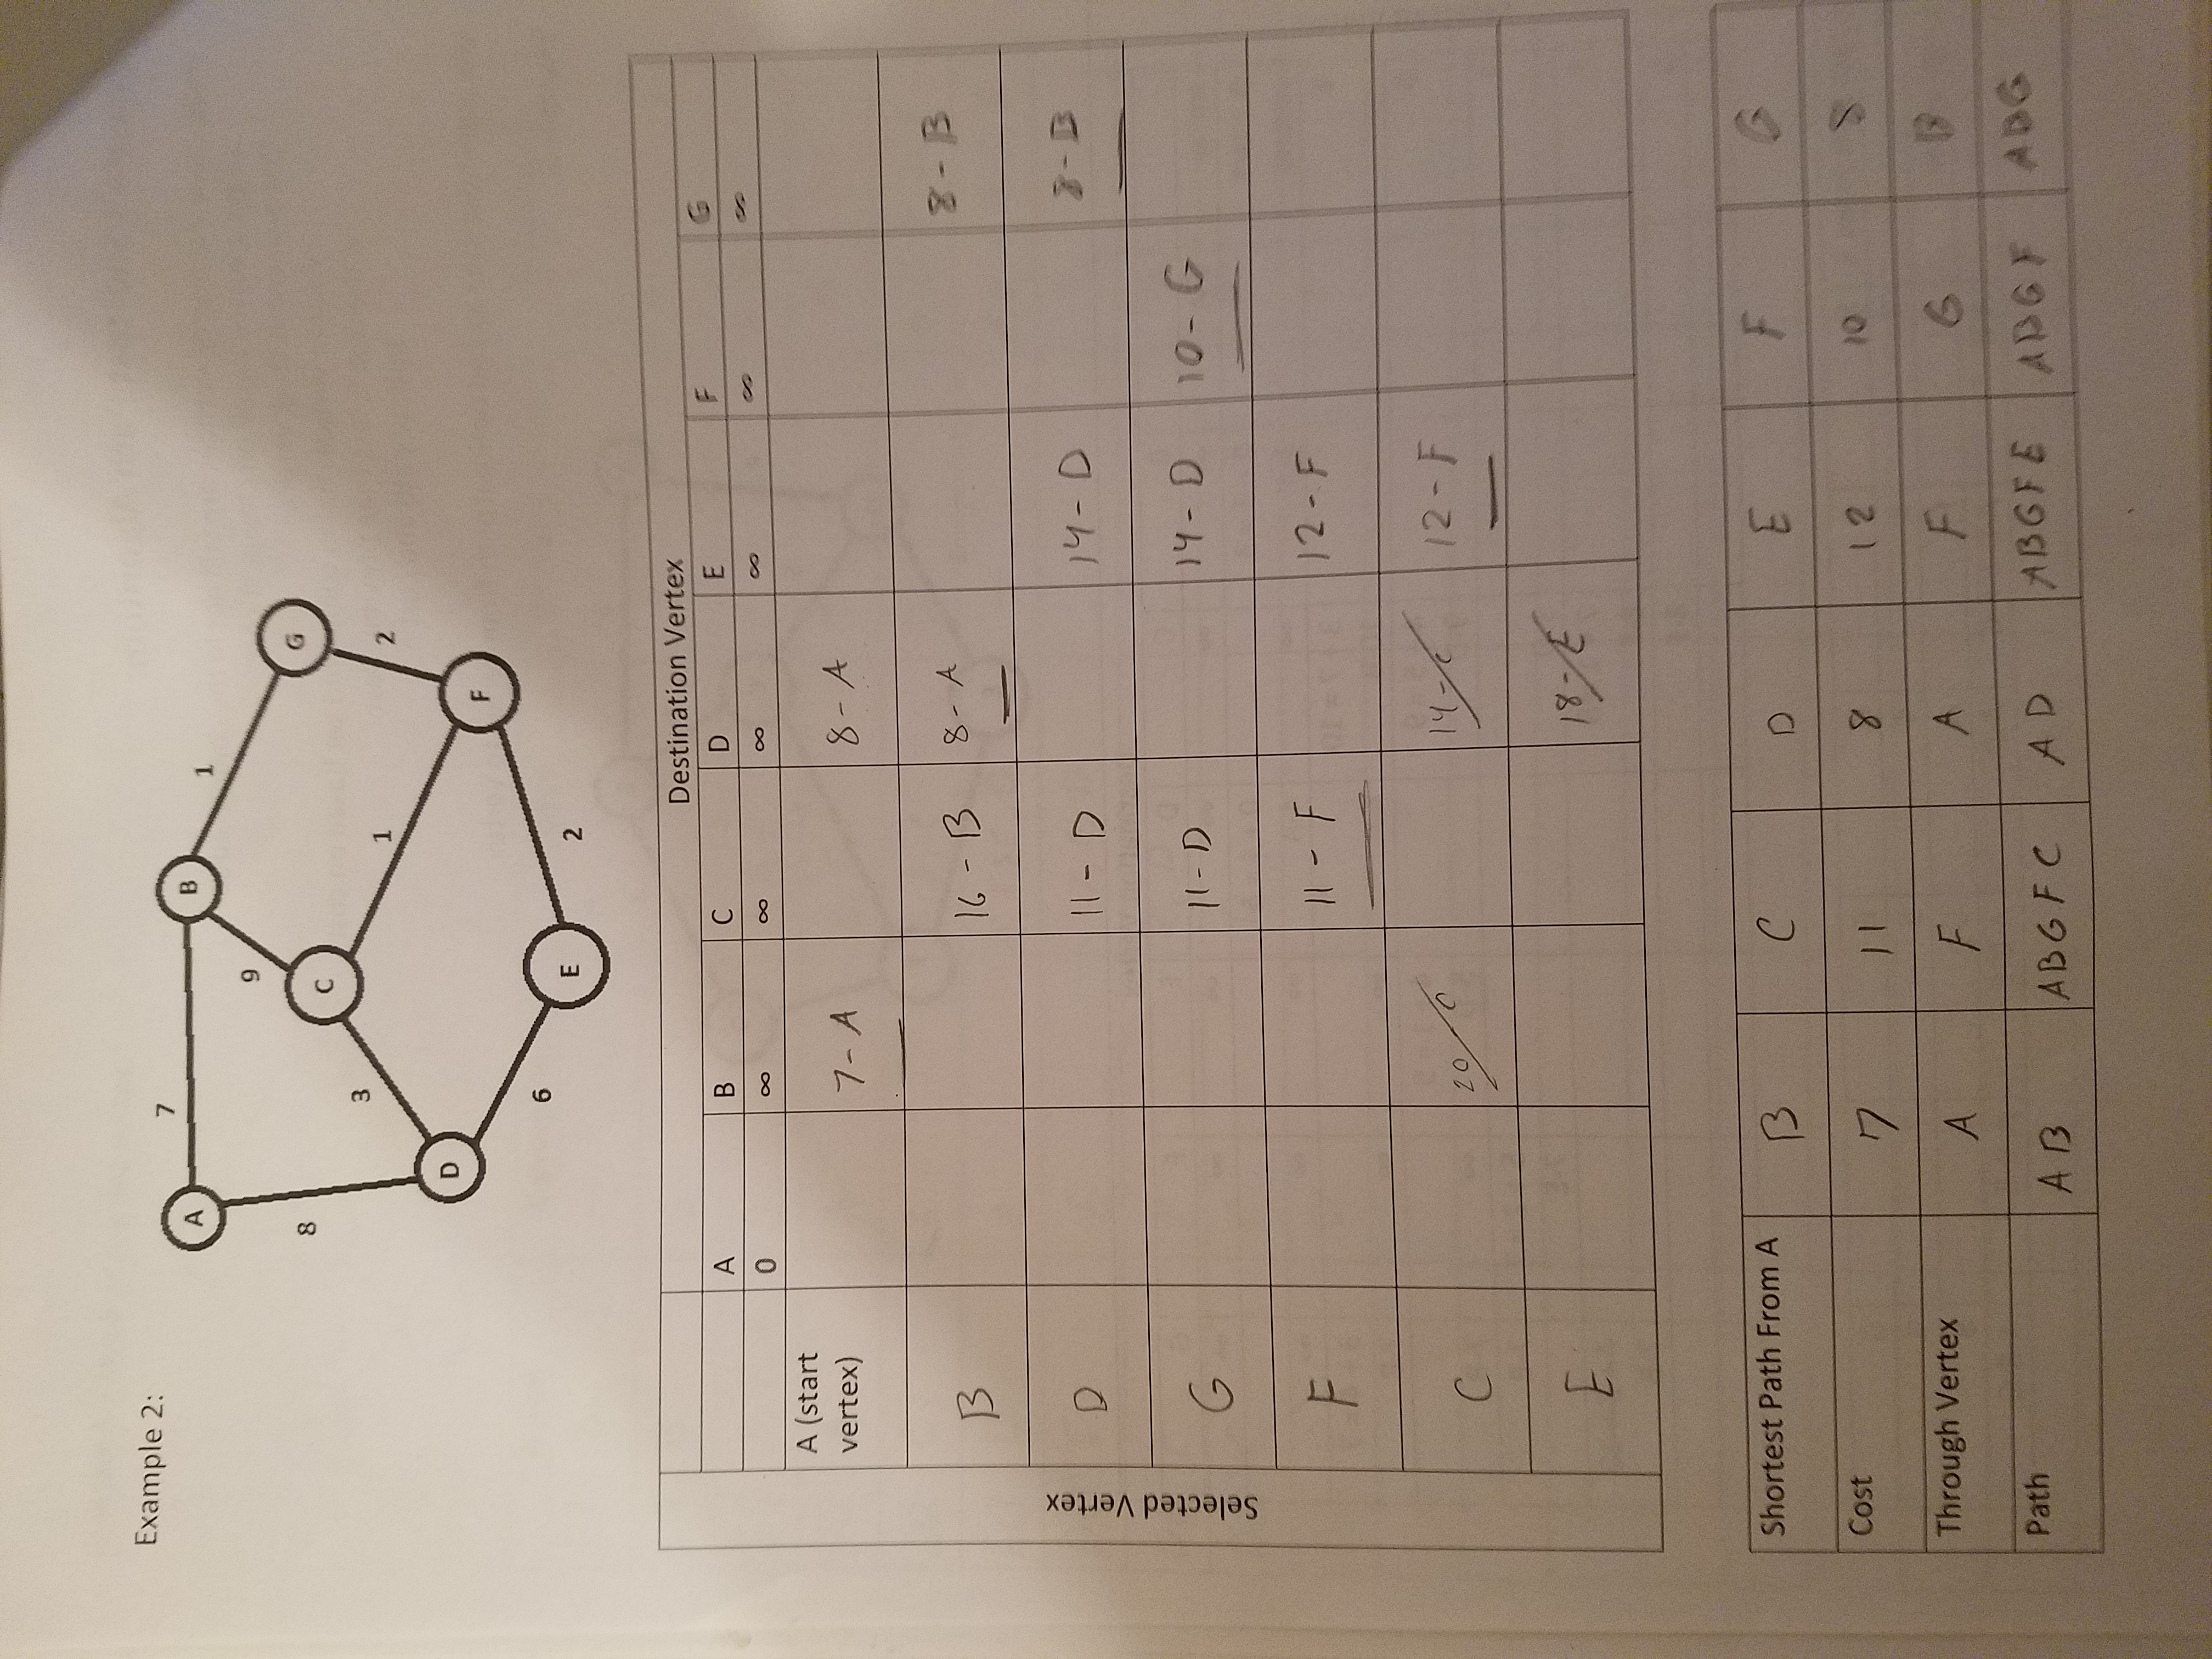 Example 2:
7
A
B
1
9
8
G
C
3
1
2
D
F
6
E
2
Destination Vertex
A B C D E F G
0 ∞ ∞ ∞ ∞ ∞ ∞
Selected Vertex
A (start
vertex)
7 - A 8 - A
B 16 - B 8 - A 8 - B
D 11 - D 14 - D 8 - B
G 11 - D 14 - D 10 - G
F 11 - F 12 - F
C 20 - C 14 - C 12 - F
E 18 - E
Shortest Path From A B C D E F G
Cost 7 11 8 12 10 8
Through Vertex A F A F G B
Path A B A B G F C A D A B G F E A B G F A B G